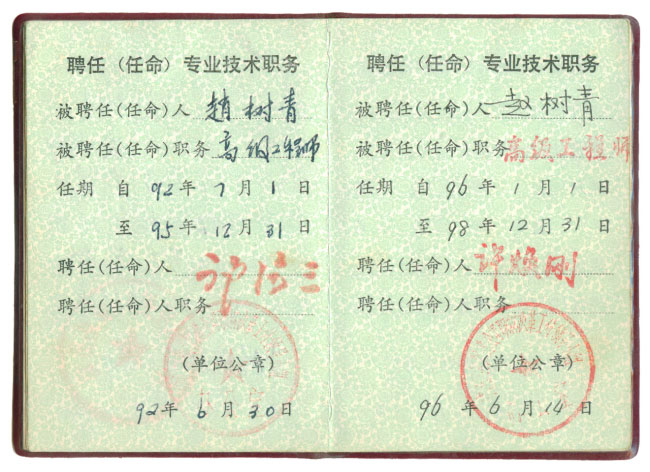 聘任（任命）专业技术职务
被聘任(任命)人 趙树青
被聘任(任命)职务 高级工程师
任期 自 92 年 7 月 1 日
至 95 年 12 月 31 日
聘任(任命)人
聘任(任命)人职务
(单位公章)
92 年 6 月 30 日
聘任（任命）专业技术职务
被聘任(任命)人 赵树青
被聘任(任命)职务 高级工程师
任期 自 96 年 1 月 1 日
至 98 年 12 月 31 日
聘任(任命)人 许焕刚
聘任(任命)人职务
(单位公章)
96 年 6 月 14 日